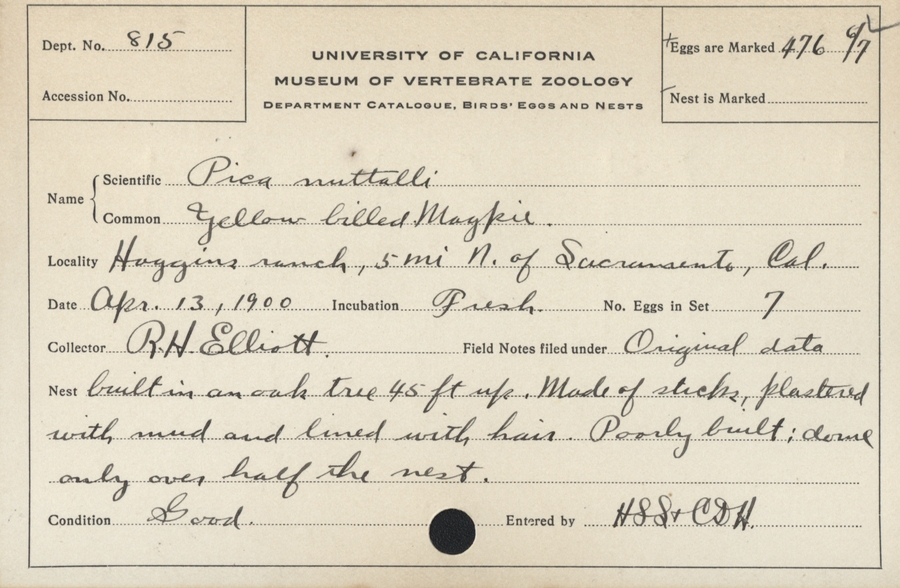 Dept. No. 815
Accession No.
UNIVERSITY OF CALIFORNIA
MUSEUM OF VERTEBRATE ZOOLOGY
DEPARTMENT CATALOGUE, BIRDS' EGGS AND NESTS
Eggs are Marked 476
Nest is Marked
Name
Scientific Pica nuttalli
Common Yellow billed Magpie.
Locality Haggins ranch, 5 mi N. of Sacramento, Cal.
Date Apr. 13, 1900 Incubation Fresh. No. Eggs in Set 7
Collector R.H. Elliott. Field Notes filed under Original data
Nest built in an oak tree 45 ft up. Made of sticks, plastered
with mud and lined with hair. Poorly built; dome
only over half the nest.
Condition Good. Entered by HSS + CDH.